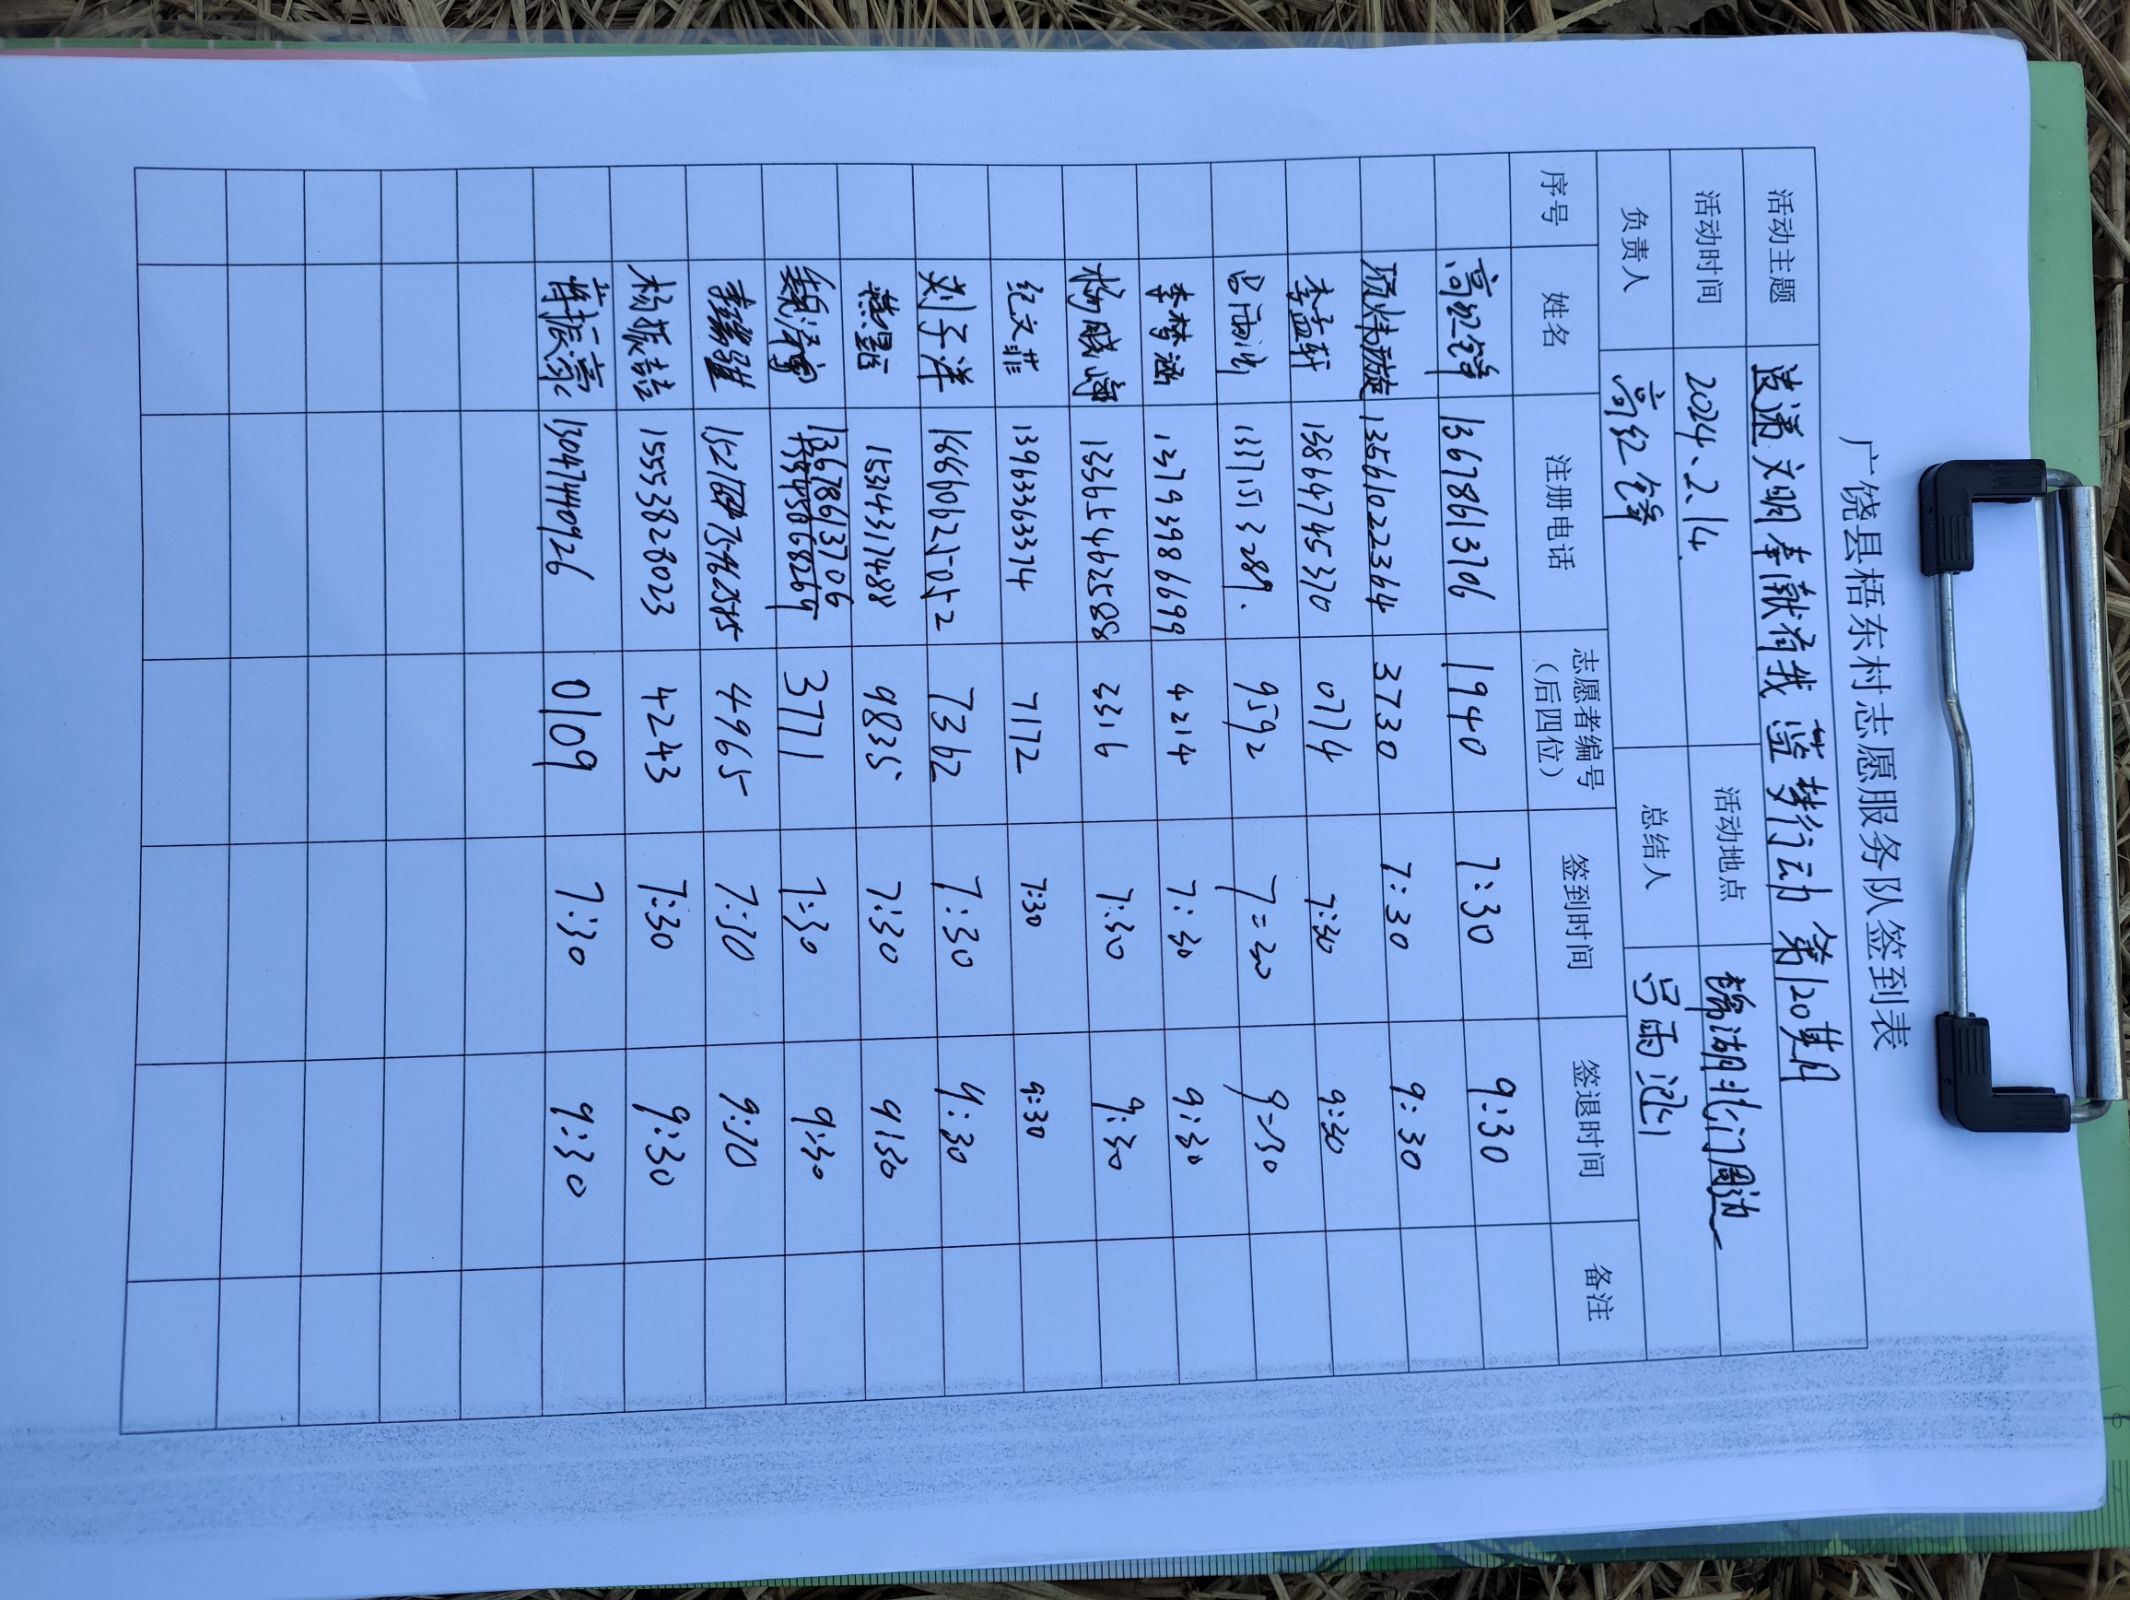 广饶县梧东村志愿服务队签到表
活动主题 传递文明奉献有我 蓝梦行动 第120期
活动时间 2024.2.14. 活动地点 北门周边
负责人 高红锋 总结人 吕雨
序号 姓名 注册电话 志愿者编号（后四位） 签到时间 签退时间 备注
高红锋 13678613706 1940 7:30 9:30
13561022364 3730 7:30 9:30
李孟轩 13864745370 0774 7:30 9:30
吕雨 13371513289. 9592 7=30 9=30
李梦涵 13793986699 4214 7:30 9:30
杨 13365462588 2316 7:30 9:30
纪文菲 13963363374 7172 7:30 9:30
刘子洋 16660625052 7362 7:30 9:30
15314317488 9835 7:30 9:30
13678613706 3771 7:30 9:30
4965 7:30 9:30
杨振喆 15553828023 4243 7:30 9:30
13047440926 0109 7:30 9:30